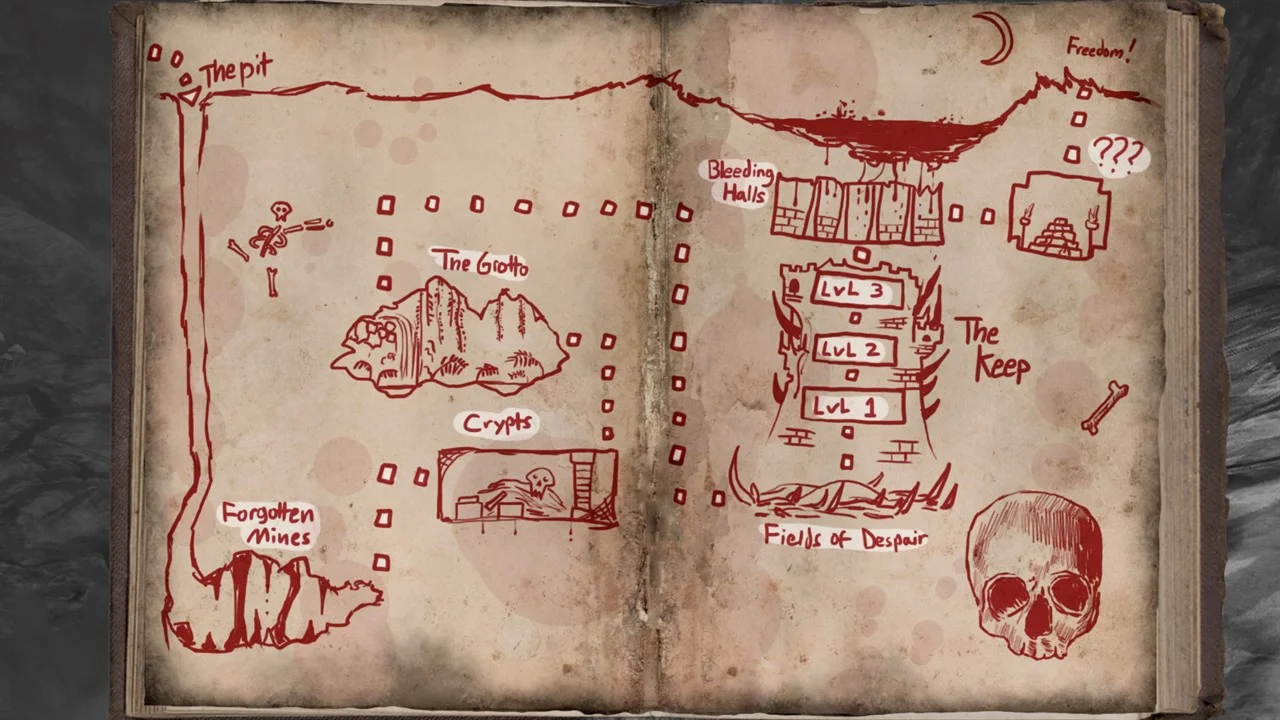 The pit
Freedom!
???
Bleeding
Halls
The Grotto
LvL 3
LvL 2
The
Keep
LvL 1
Crypts
Forgotten
Mines
Fields of Despair